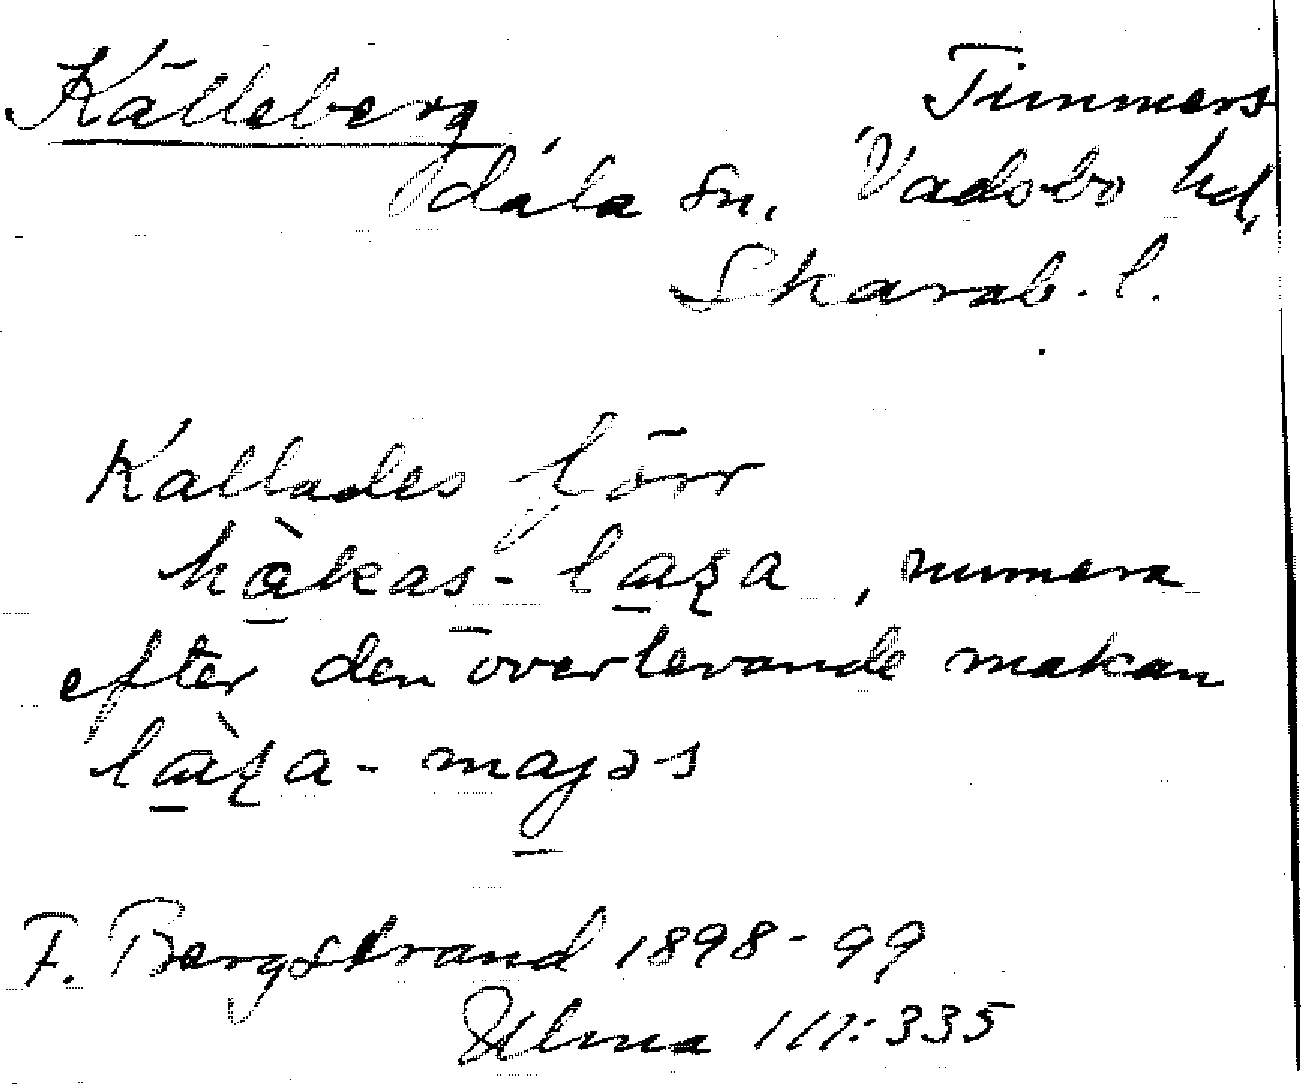 Källeberg Timmers
dala sn. Vadsbo hd,
Skarab. l.
Kallades förr
hàkas-laʂa, numera
efter den överlevande makan
làʂa-majəs
F. Bergstrand 1898-99
Ulma 111:335